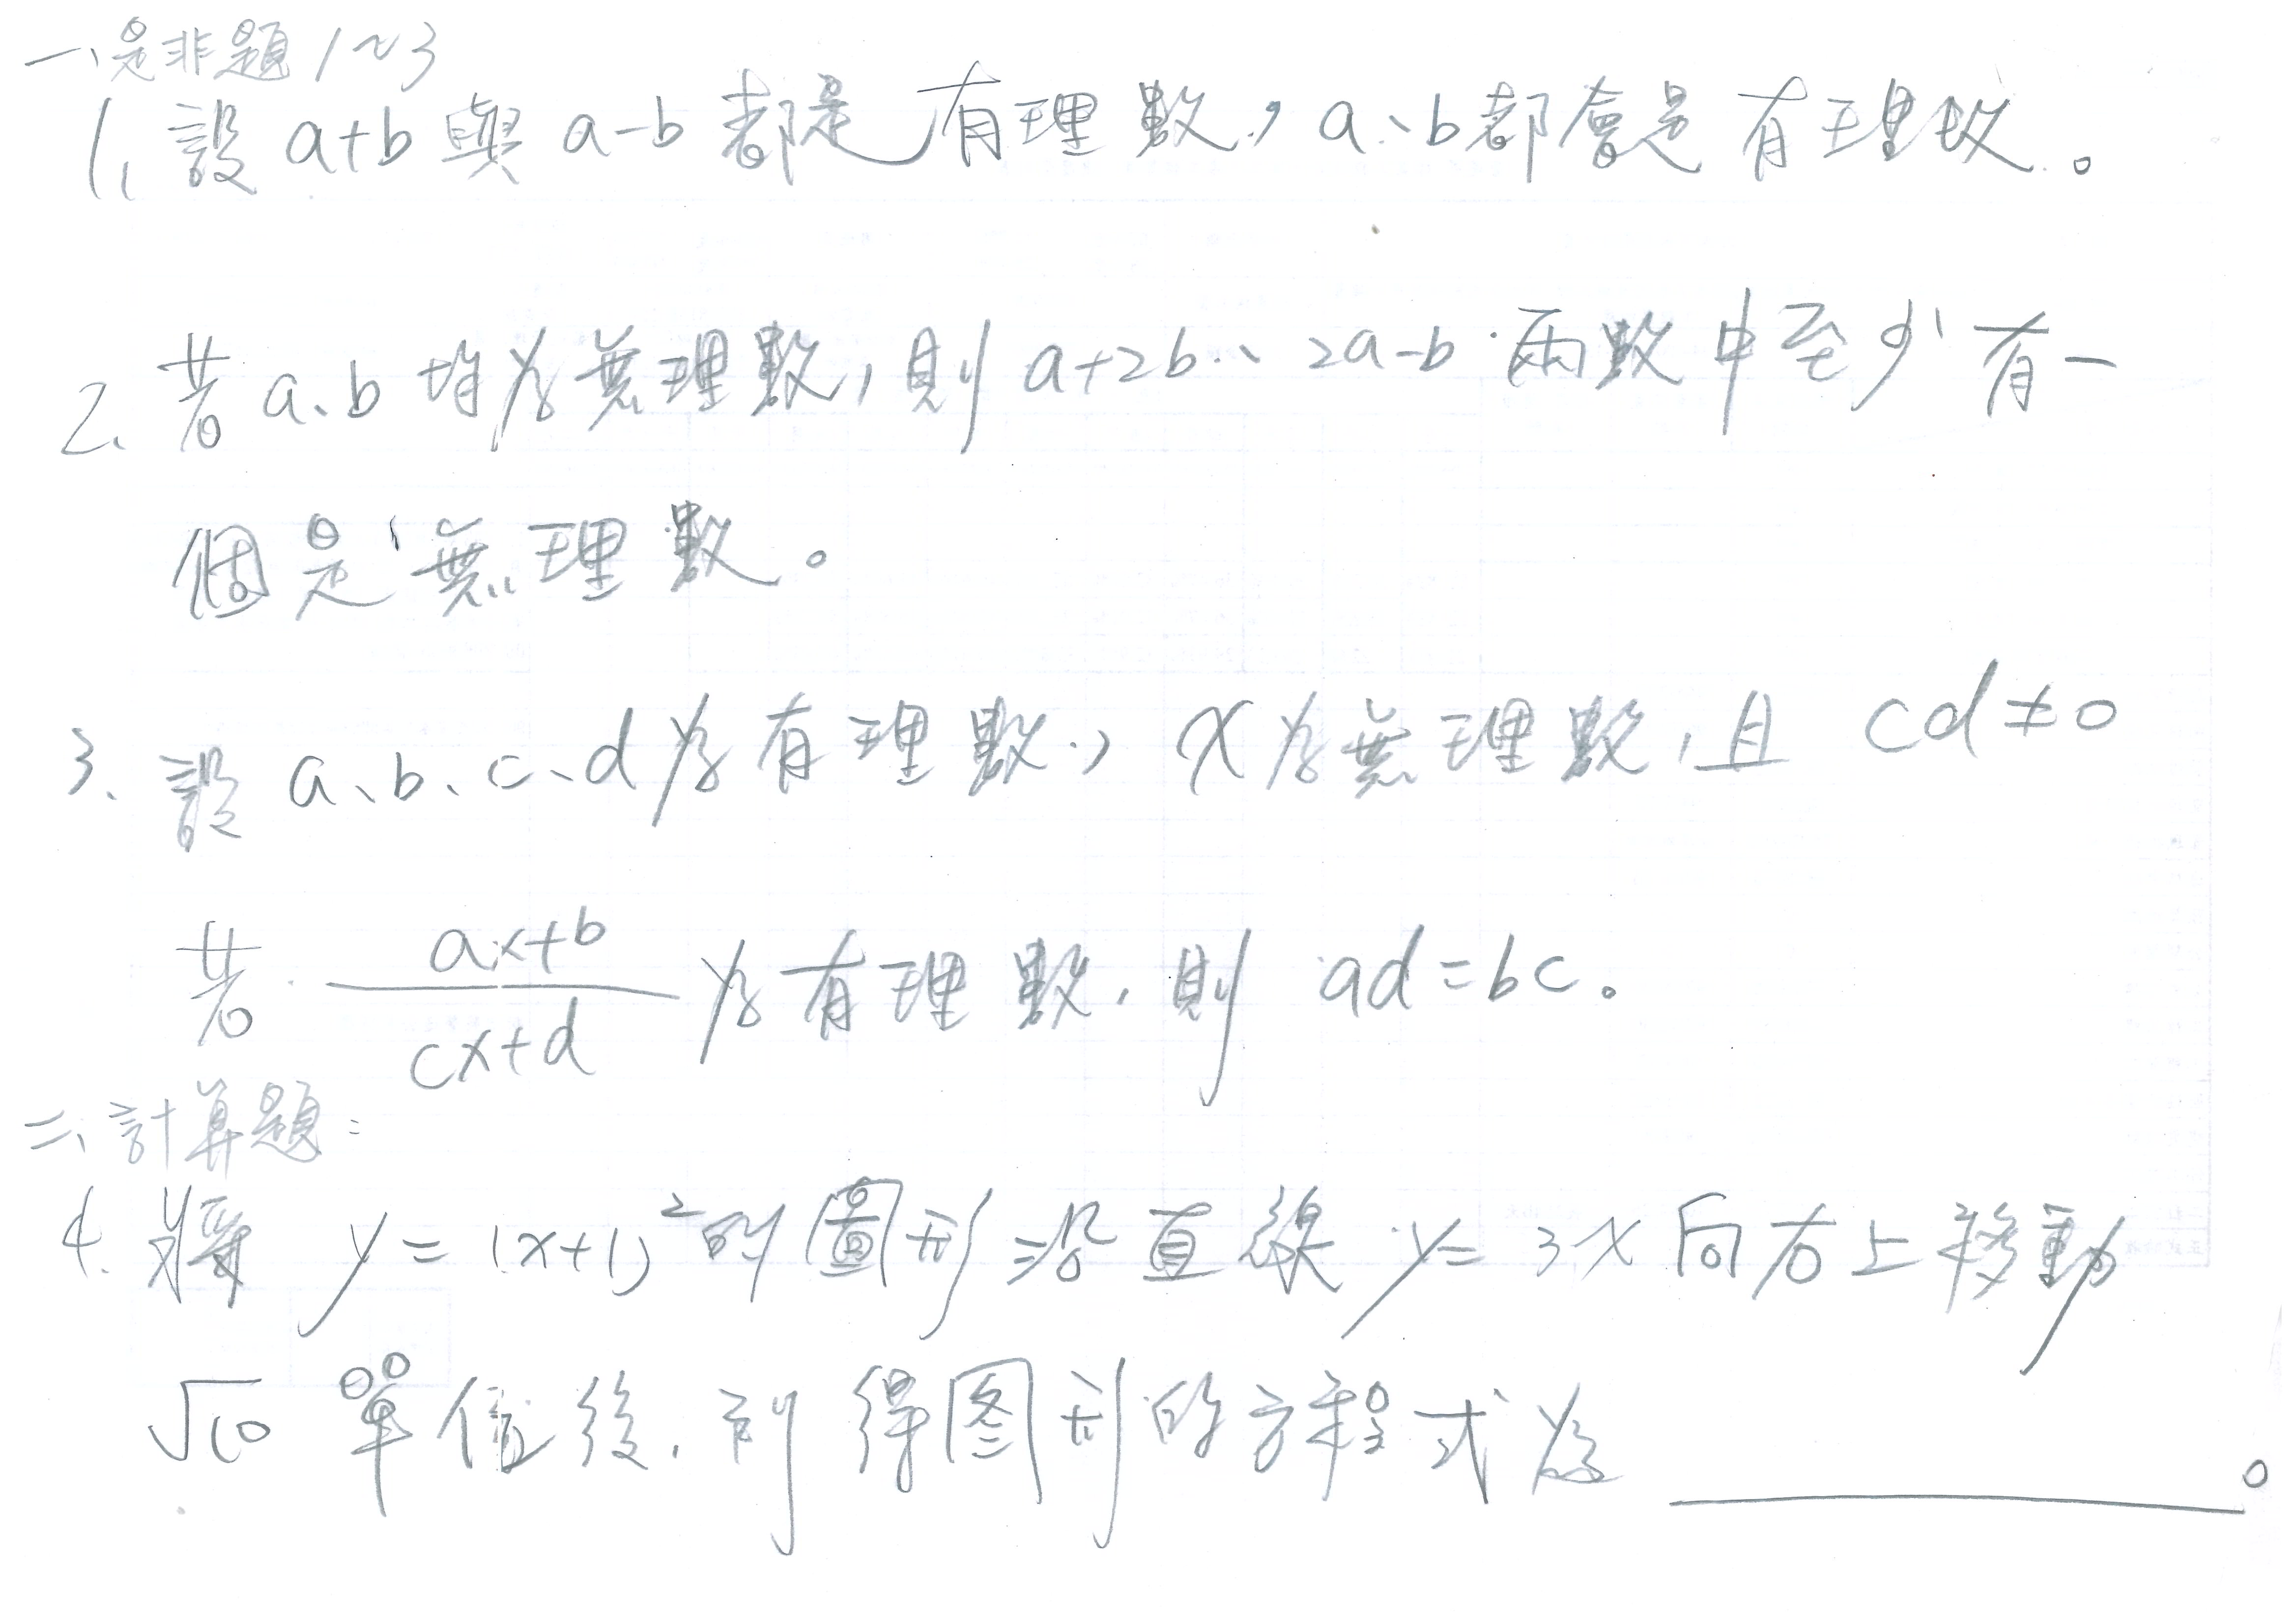 一、是非題 1~3
1. 設 a+b 與 a-b 都是有理數，a、b都會是有理数。
2. 若 a、b 均為無理數，則 a+2b、2a-b 兩數中至少有一
個是無理數。
3. 設 a、b、c、d為有理數，x為無理數，且 cd≠0
若 \frac{ax+b}{cx+d} 為有理數，則 ad=bc。
二、計算題：
4. 將 y=(x+1)² 的圖形沿直線 y=3x 向右上移動
√10 單位後，所得图形的方程式為 ________。